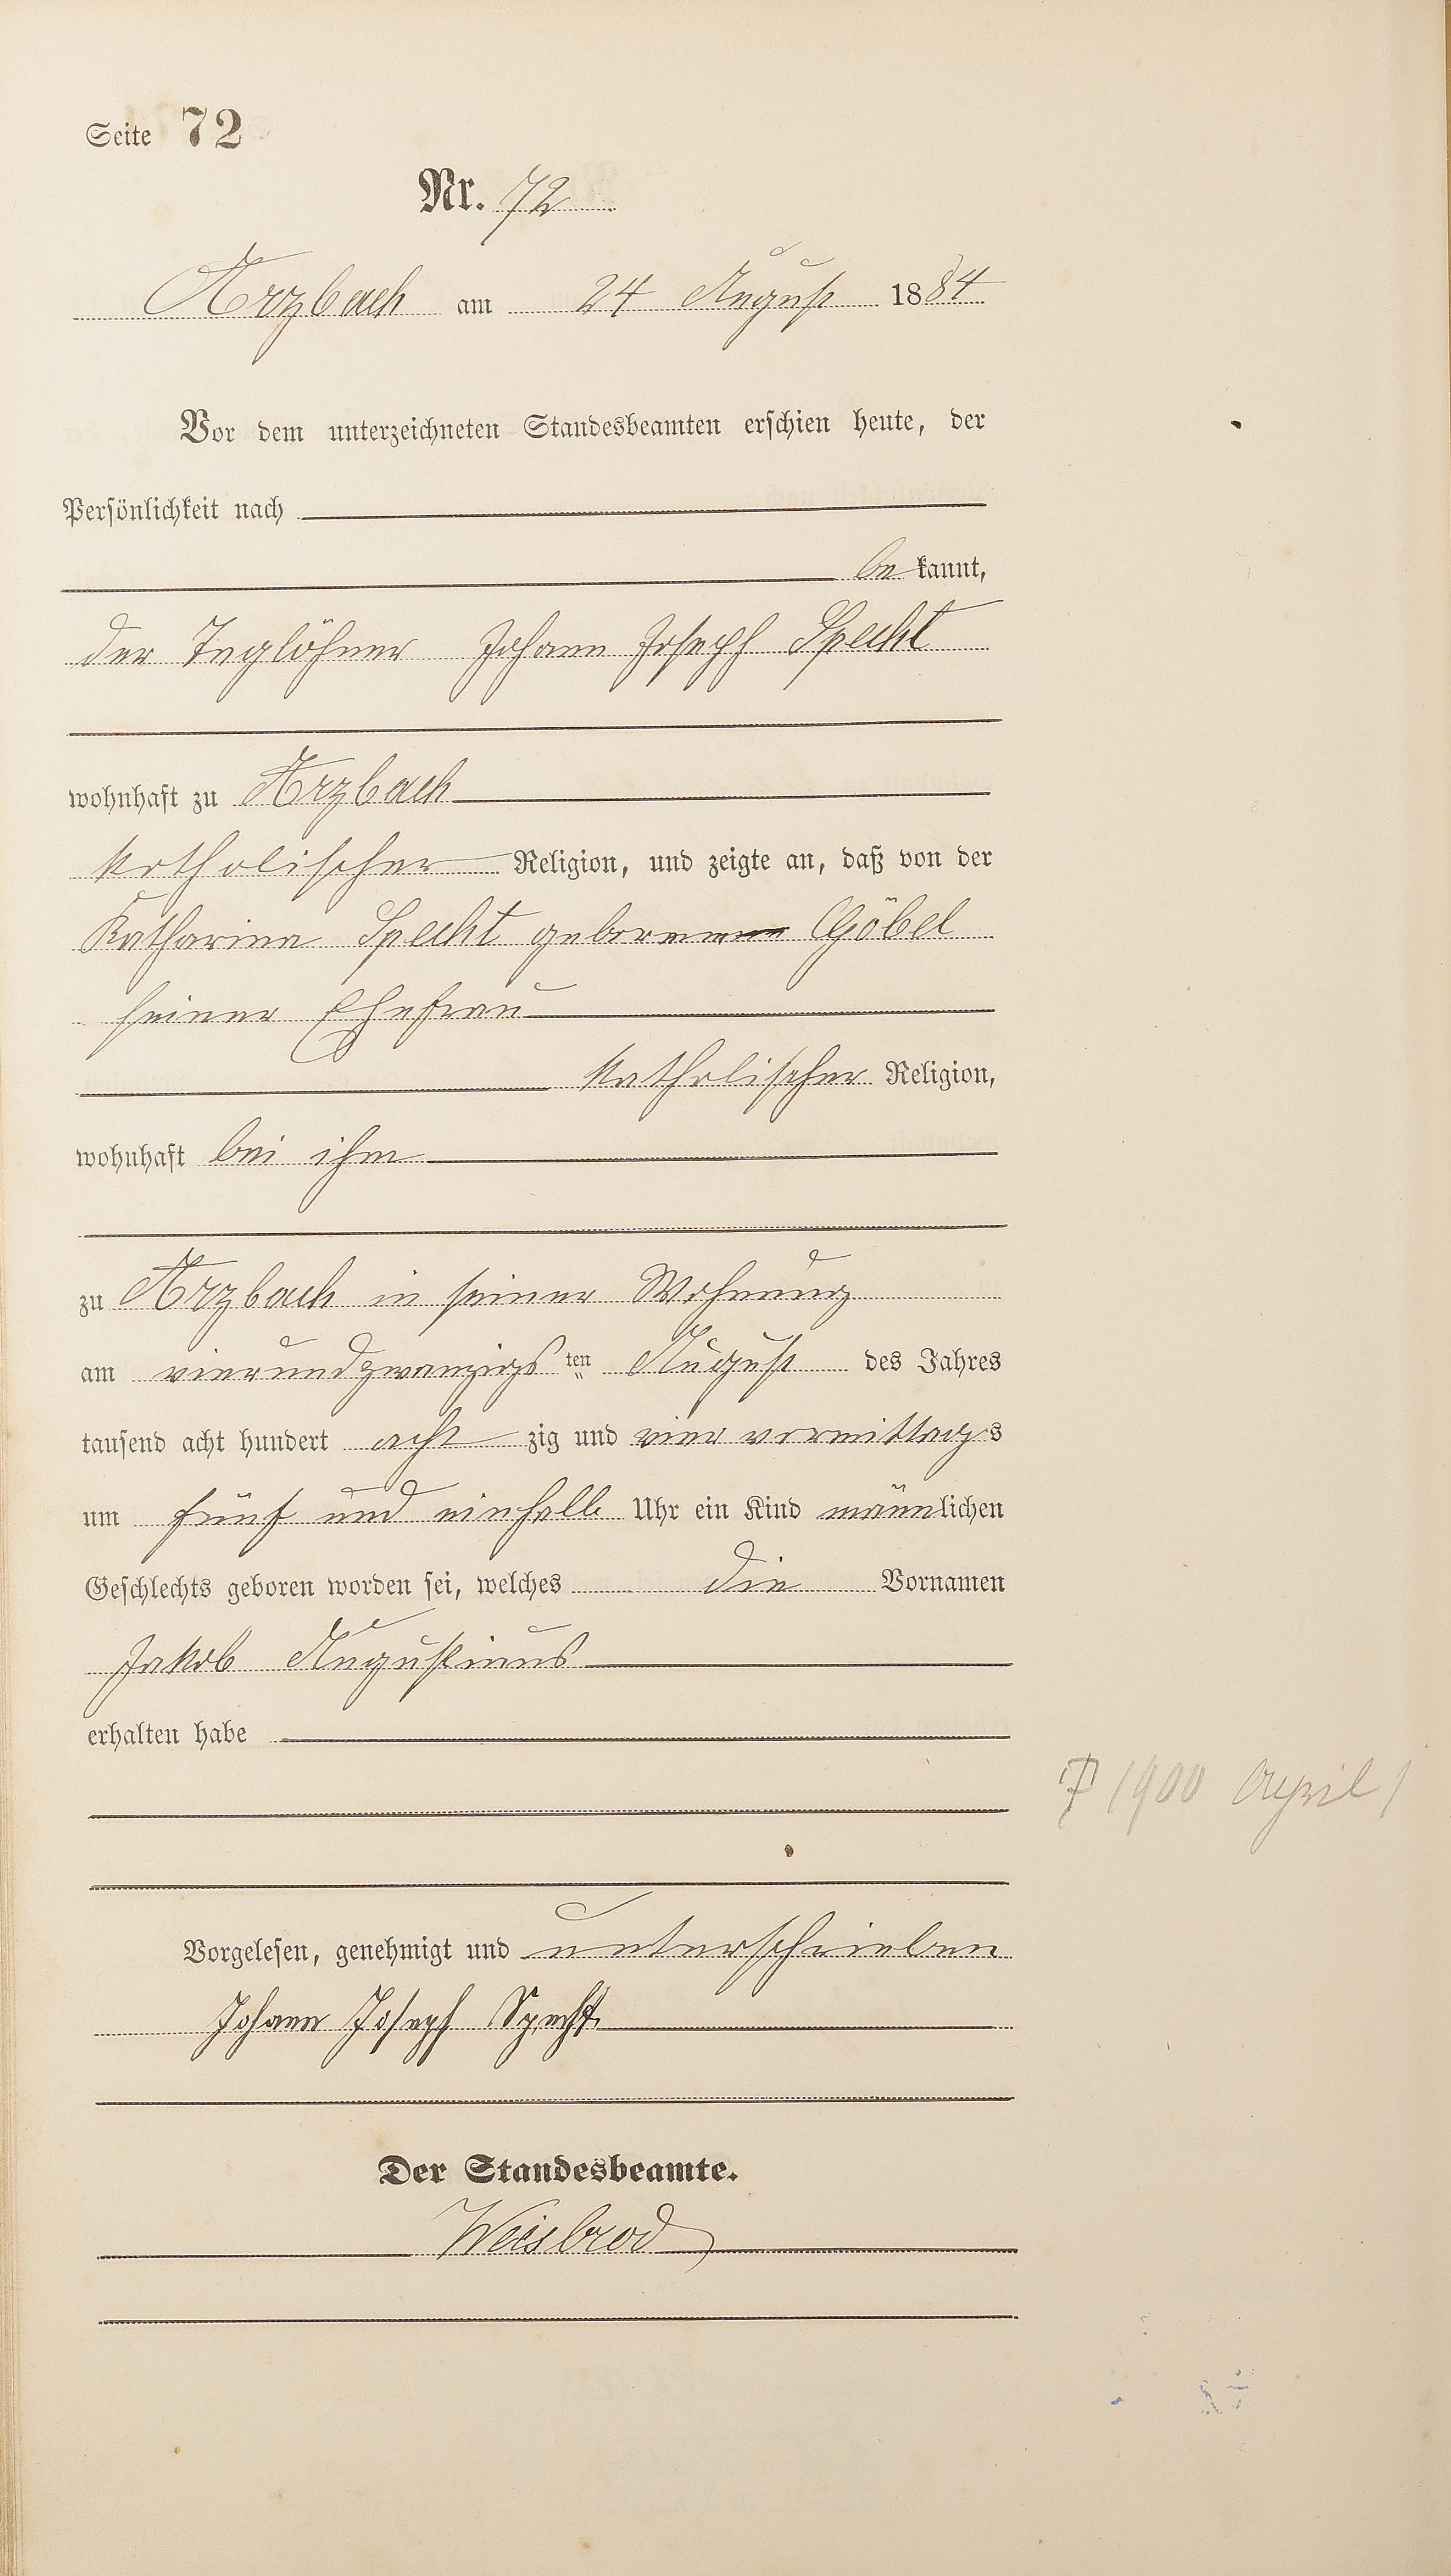 Seite 72
Nr. 72
Arzbach am 24 August 1884
Vor dem unterzeichneten Standesbeamten erschien heute, der
Persönlichkeit nach
bekannt,
der Taglöhner Johann Joseph Specht
wohnhaft zu Arzbach
katholischer Religion, und zeigte an, daß von der
Katharina Specht geborenen Göbel
seiner Ehefrau
katholischer Religion,
wohnhaft bei ihm
zu Arzbach in seiner Wohnung
am vierundzwanzigs ten August des Jahres
tausend acht hundert acht zig und vier vormittags
um fünf und einhalb Uhr ein Kind männlichen
Geschlechts geboren worden sei, welches die Vornamen
Jakob Augustinus
erhalten habe
† 1900 April 1
Vorgelesen, genehmigt und unterschrieben
Johann Joseph Specht
Der Standesbeamte.
Weisbrod